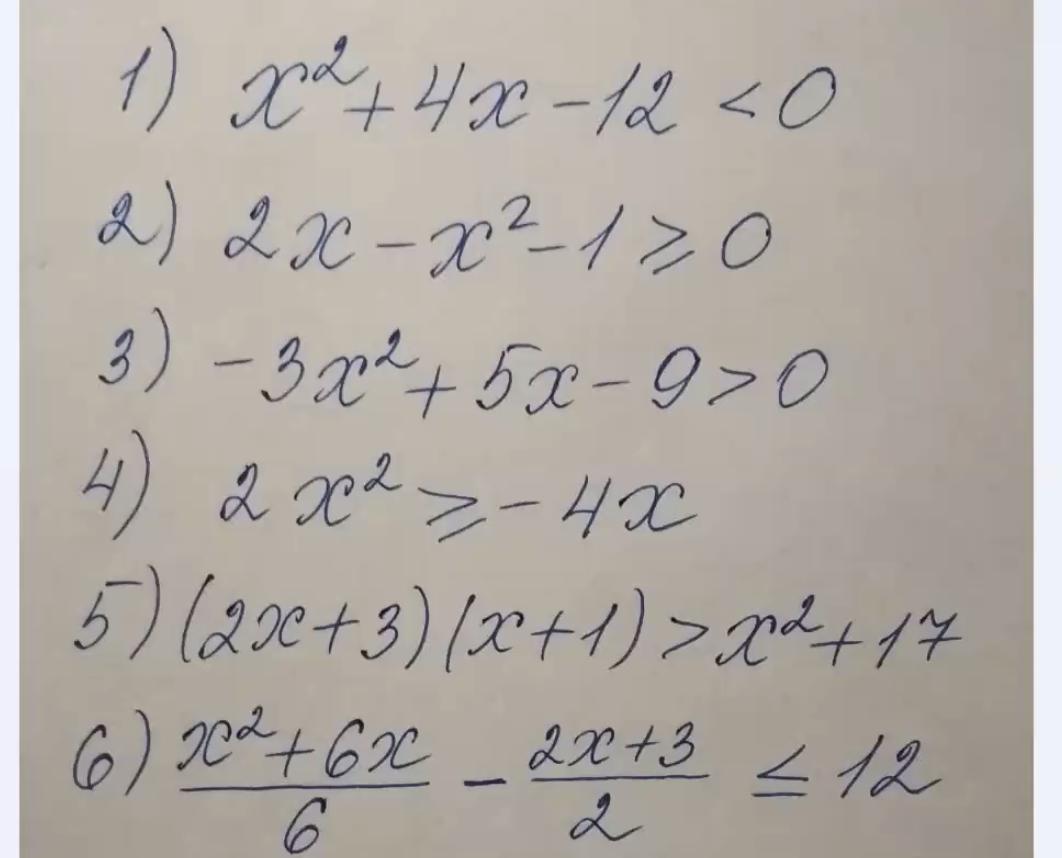 1) x² + 4x - 12 < 0
2) 2x - x² - 1 ⩾ 0
3) -3x² + 5x - 9 > 0
4) 2x² ⩾ -4x
5) (2x + 3)(x + 1) > x² + 17
6) \frac{x² + 6x}{6} - \frac{2x + 3}{2} ≤ 12